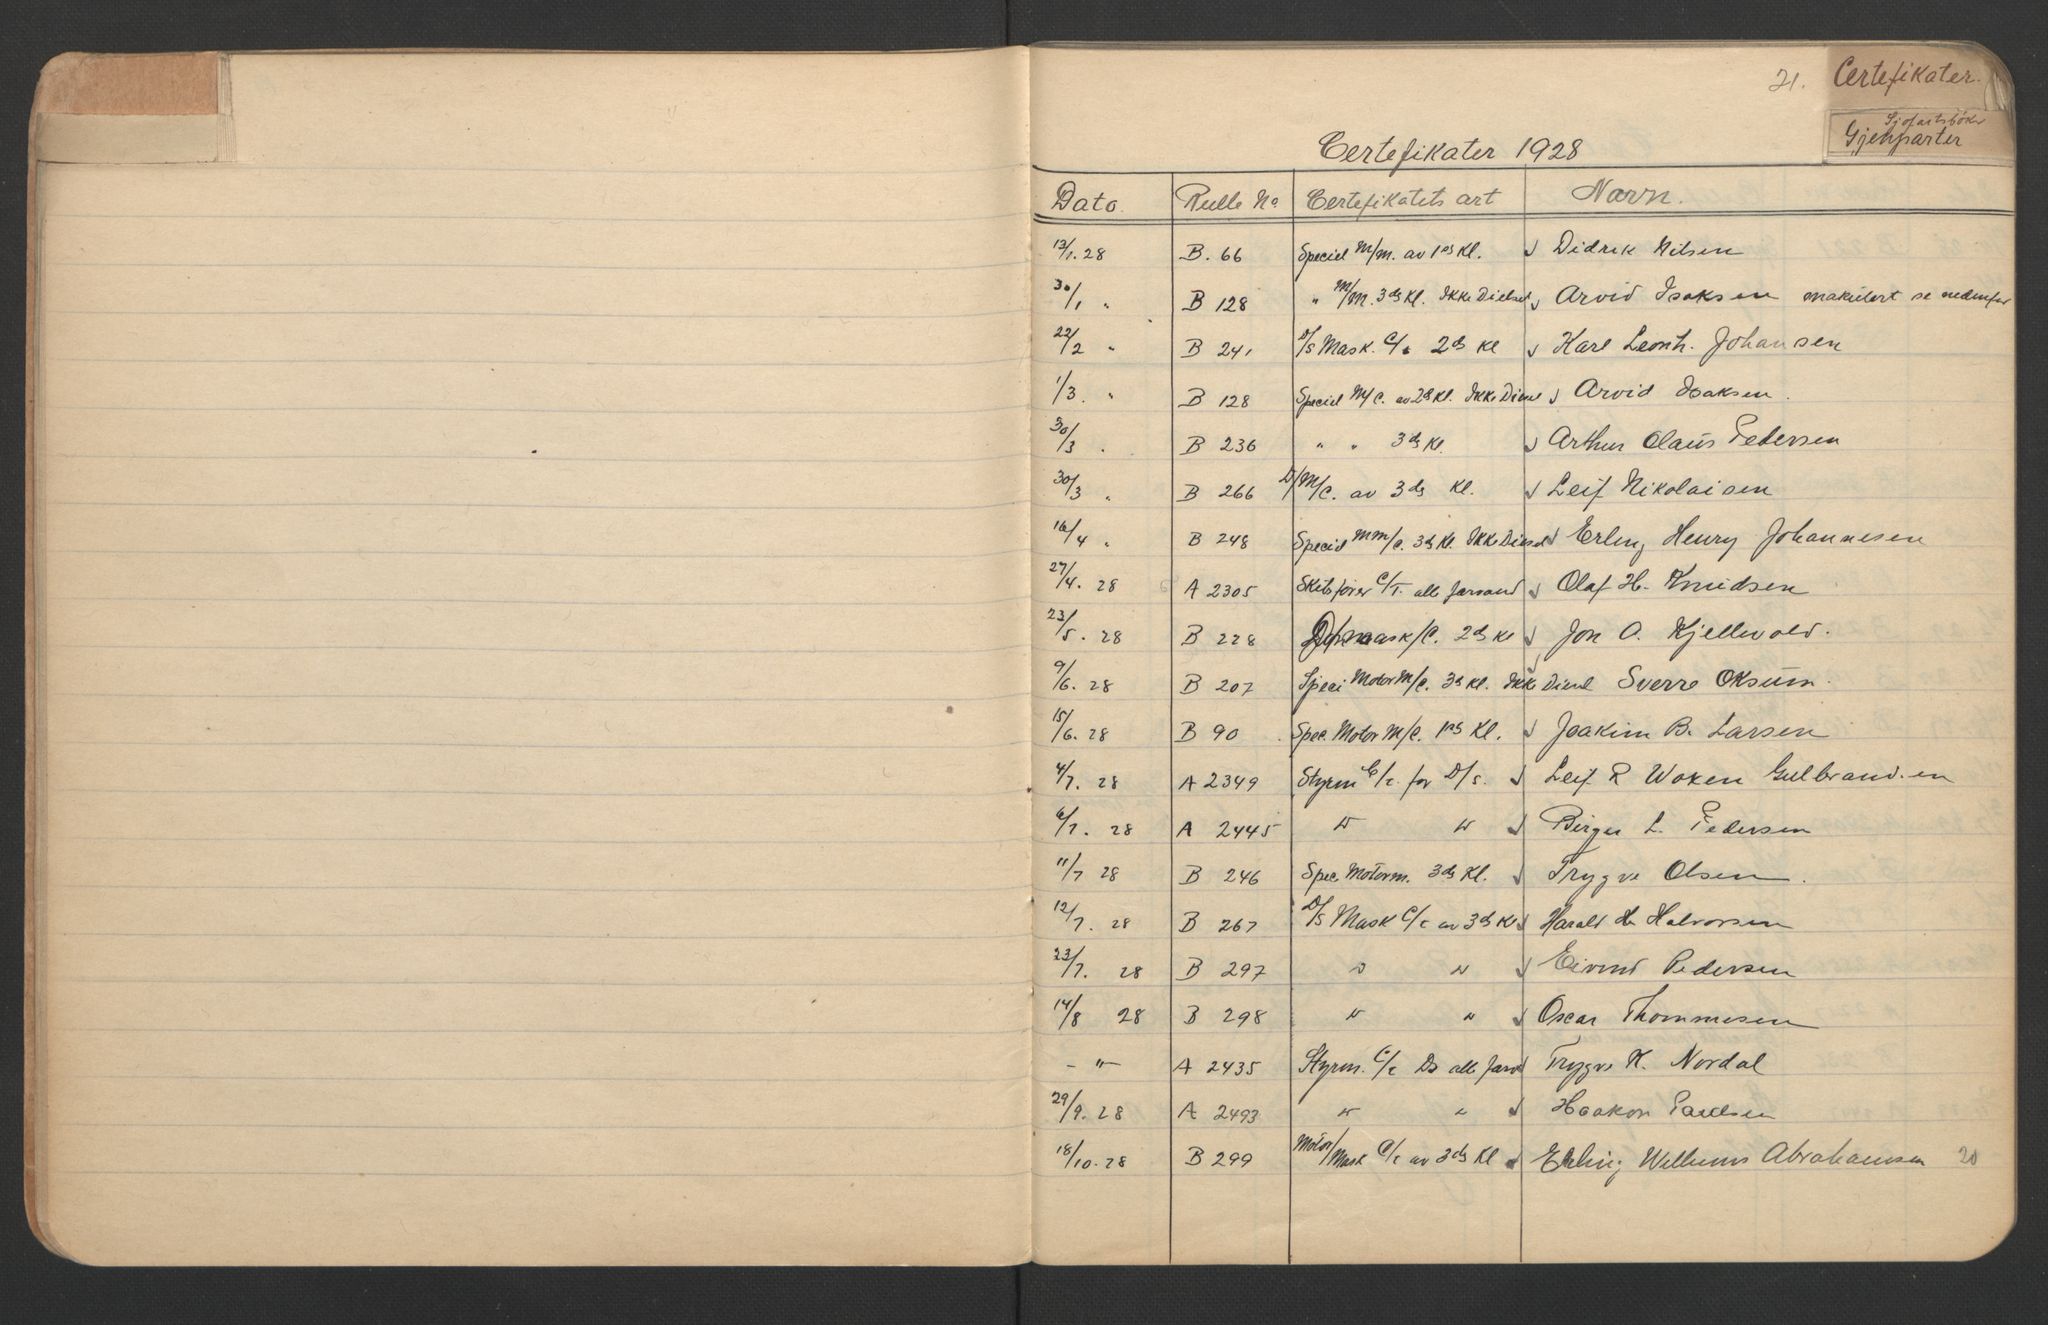 21. Certefikater.
Sjøfartsbøker
Gjenparter
Certefikater 1928
Dato. Rulle No Certefikatets art Navn.
13/1. 28 B. 66 Speciel M/m. av 1ste Kl. Didrik Nilsen
30/1 " B 128 " M/M. 3dj Kl. Ikke Diesel Arvid Isaksen makulert se nedenfor
22/2 " B 241 D/S Mask. C/t 2dj Kl Karl Leonh. Johansen
1/3. " B 128 Speciel M/C. av 2dj Kl. Ikke Diesel Arvid Isaksen.
30/3 " B 236 " " 3dj Kl. Arthur Olaüs Pedersen
30/3 " B 266 D/M/C. av 3dj Kl. Leif Nikolaisen
16/4 " B 248 Speciel Mm/C. 3dj Kl. Ikke Diesel Erling Henry Johannesen
27/4. 28 A 2305 Skibsfører C/t. alle farvand Olaf H. Knudsen
23/5. 28 B 228 mask/C. 2dj Kl Jon O. Kjellevold.
9/6. 28 B 207 Speci Motor M/C. 3dj Kl. Ikke Diesel Sverre Oksüm.
15/6. 28 B 90 Spec. Motor M/C. 1ste Kl. Joakim B. Larsen
4/7. 28 A 2349 Styrm C/t. for D/s. Leif R Woxen Gulbrandsen
6/7. 28 A 2445 " " Birger L. Pedersen
11/7 28 B 246 Spec Motorm. 3dj Kl. Trygve Olsen.
12/7. 28 B 267 D/S Mask C/t av 3dj Kl Harald H. Halvorsen
23/7. 28 B 297 " " Eivind Pedersen
14/8 28 B 298 " " Oscar Thommesen
- " - A 2435 Styrm. C/t Ds alle farvd Trygve K. Nordal
29/9. 28 A 2493 " " Haakon Paulsen
18/10. 28 B 299 Motor/Mask C/t av 3dj Kl Erling Williums Abrahamsen 20